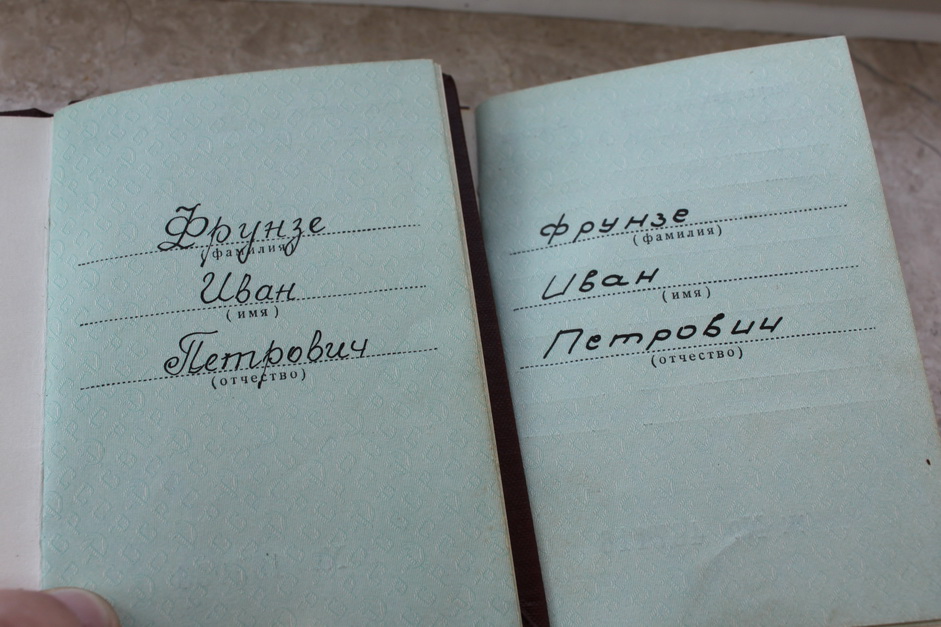 Фрунзе
(фамилия)
Иван
(имя)
Петрович
(отчество)
Фрунзе
(фамилия)
Иван
(имя)
Петрович
(отчество)